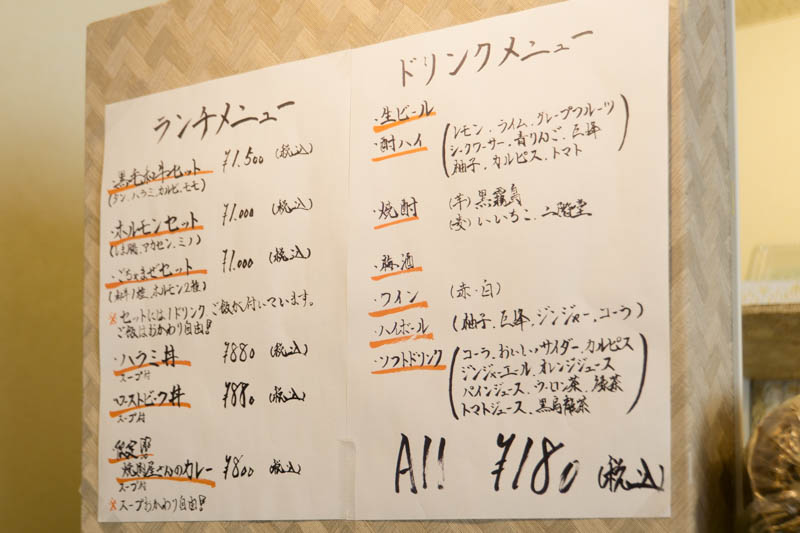 ランチメニュー
・黒毛和牛セット ¥1,500 (税込)
(タン、ハラミ、カルビ、モモ)
・ホルモンセット ¥1,000 (税込)
(しま腸、アカセン、ミノ)
・ごちゃまぜセット ¥1,000 (税込)
(和牛1種、ホルモン2種)
※セットには1ドリンク ご飯が付いています。
ご飯はおかわり自由!!
・ハラミ丼 ¥880 (税込)
スープ付
・ローストビーフ丼 ¥880 (税込)
スープ付
限定
焼肉屋さんのカレー ¥800 (税込)
スープ付
※スープおかわり自由!!
ドリンクメニュー
・生ビール
・酎ハイ (レモン、ライム、グレープフルーツ
シークワーサー、青りんご、巨峰
柚子、カルピス、トマト)
・焼酎 (芋) 黒霧島
(麦) いいちこ、二階堂
・梅酒
・ワイン (赤・白)
・ハイボール (柚子、巨峰、ジンジャー、コーラ)
・ソフトドリンク (コーラ、おいしいサイダー、カルピス
ジンジャーエール、オレンジジュース
パインジュース、ウーロン茶、緑茶
トマトジュース、黒烏龍茶)
All ¥180 (税込)